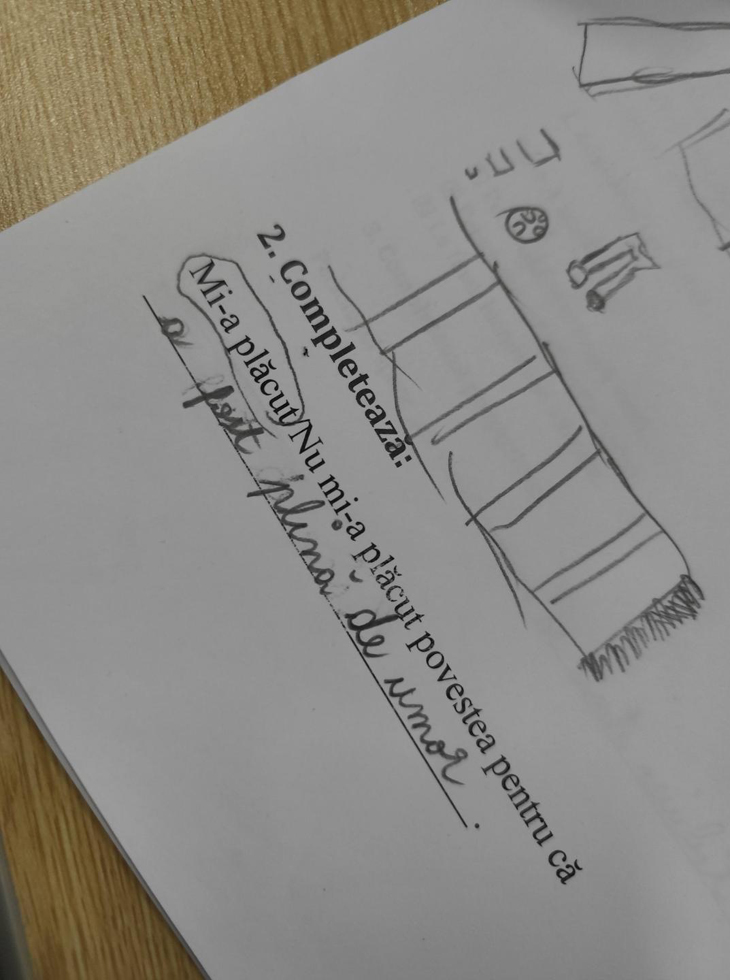 2. Completează:
Mi-a plăcut/Nu mi-a plăcut povestea pentru că
a fost plină de umor.